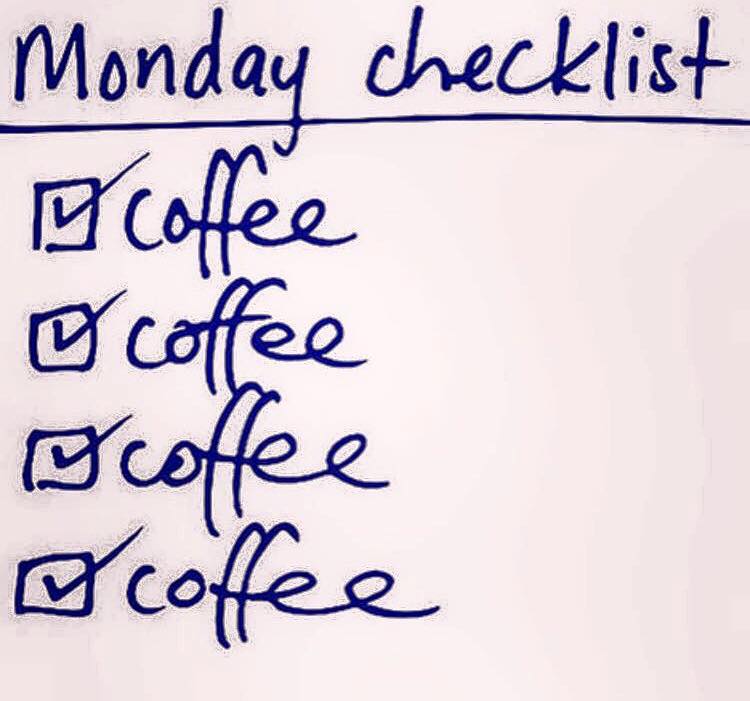 Monday checklist
coffee
coffee
coffee
coffee